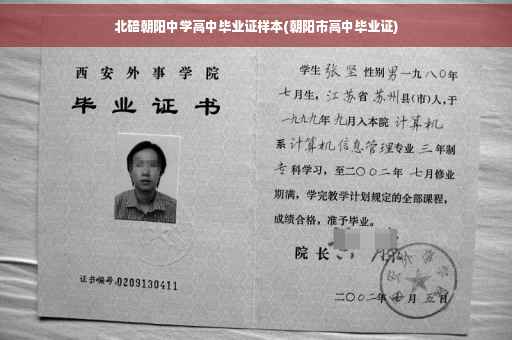 北碚朝阳中学高中毕业证样本(朝阳市高中毕业证)
西安外事学院
毕业证书
证书编号:0209130411
学生 张坚 性别 男 一九八〇年
七月生,江苏省 苏州县(市)人,于
一九九九年 九月入本院 计算机
系 计算机信息管理专业 三 年制
专科学习,至二〇〇二年 七月修业
期满,学完教学计划规定的全部课程,
成绩合格,准予毕业。
院长
二〇〇二年 月 五日